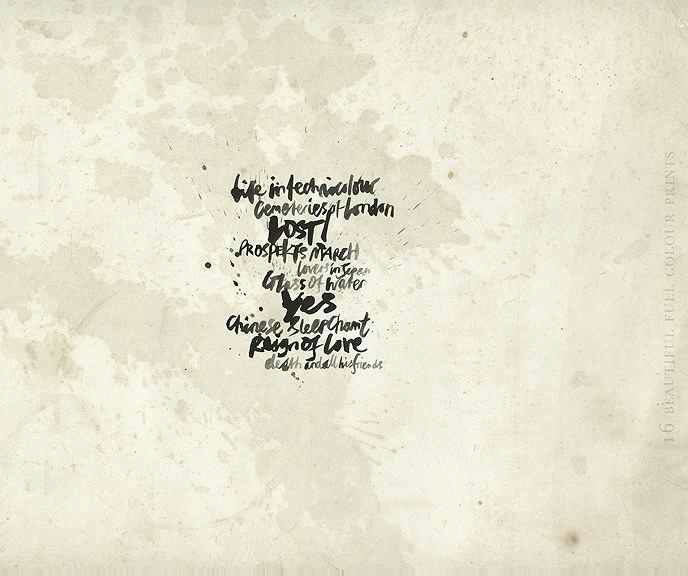 Life in technicolour
Cemeteries of London
LOST!
PROSPEKTS MARCH
lovers in Japan
Glass of Water
Yes
Chinese Sleep Chant
Reign of Love
death and all his friends
16 BEAUTIFUL FULL COLOUR PRINTS